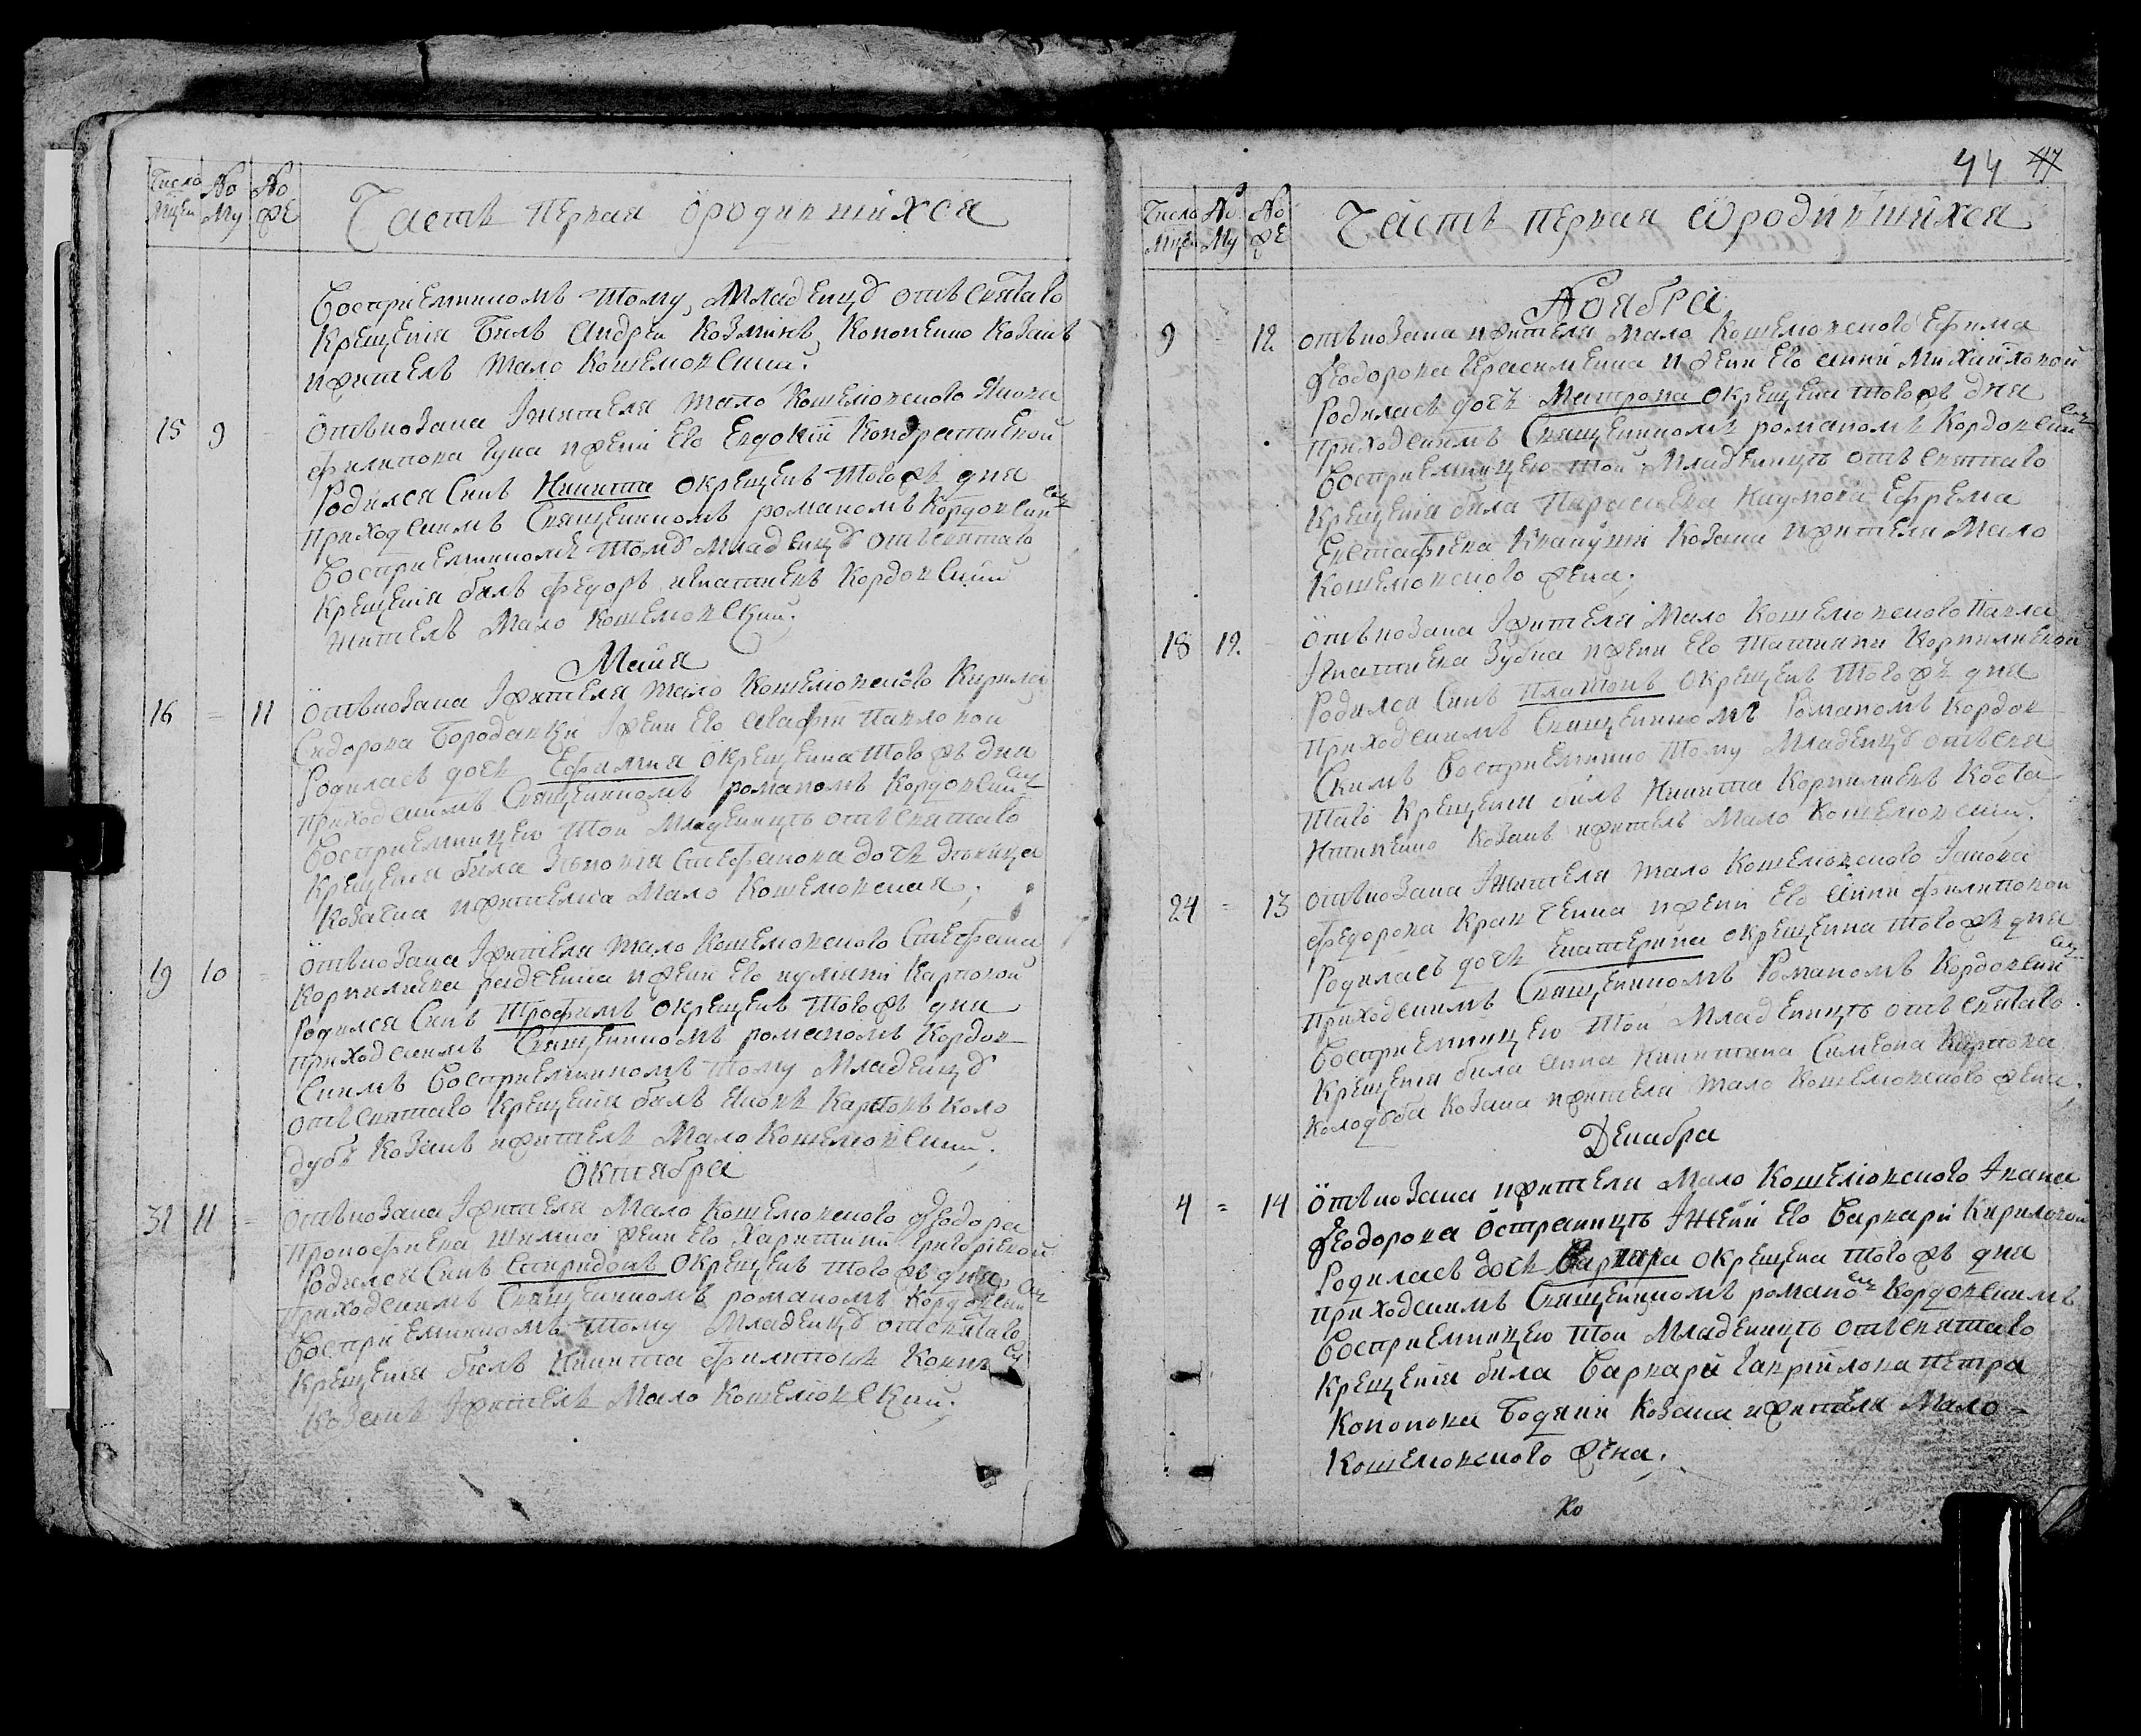 Число Мцей
No Му
No Же
Часть первая ѿ родившихся
Восприемником тому Младенцу отъ святаго
Крещенія билъ Андрей Козминъ Кононенко Козакъ
и житель Мало Кошелювский.
15 9 Отъ козака і жителя мало Кошелювского Якова
Филипова Гука и жени Его Евдокіи Кондратиевой
Родился Синъ Никита окрещенъ того жъ дня
приходскимъ Священникомъ романомъ Кордовскимъ
Восприемникомъ тому младенцу отъ святаго
Крещенія билъ Федоръ Игнатиевъ Кордовский
житель Мало Кошелювский;
Майя
16 = 11 Отъ козака і жителя мало Кошелювского Кирила
Сидорова Бородавки і жени Его Агафии Павловой
Родилась дочь Ефимия окрещенна того жъ дня
приходскимъ Священникомъ романомъ Кордовскимъ
Восприемницею той Младеници отъ святаго
Крещенія била Стефанова дочь девица
Козачка и жителка Мало Кошелювская;
19 10 = Отъ козака і жителя мало Кошелювского Стефана
Корнилиева радченка и жени Его иулянии Карповой
Родился Синъ Трофимъ окрещенъ того жъ дня
приходскимъ Священникомъ романомъ Кордов
скимъ Восприемникомъ тому Младенцу
отъ святаго Крещенія билъ Яковъ Карповъ Коло
дубъ Козакъ и житель Мало Кошелювский.
Октября
31 11 = Отъ козака і жителя Мало Кошелювского Феодора
Прокофиева жени Его Харитини Григориевой
Родился Синъ Спиридонъ окрещенъ того жъ дня
приходскимъ Священникомъ романомъ Кордовскимъ
Восприемникомъ тому Младенцу отъ святаго
Крещенія билъ Никита Филиповъ
Козакъ і житель Мало Кошелювский.
44 47
Число Мцей
No Му
No Же
Часть первая ѿ родившихся
Ноября
9 = 12 отъ козака и жителя мало Кошелювского Ефима
Феодорова Герасименка и жени Его анни Михайловой
Родилась дочь Матрона окрещена того жъ дня
приходскимъ Священникомъ романомъ Кордовскимъ
Восприемницею той Младеници отъ святаго
Крещенія била Параскева Наумова Ефрема
Евстафиева Козака и жителя Мало
Кошелювского жена;
18 12. Отъ козака і жителя Мало Кошелювского Павла
Игнатиева Зубка и жени Его Татияни Корнилиевой
Родился Синъ Платонъ окрещенъ того жъ дня
приходскимъ Священникомъ Романомъ Кордов
скимъ Восприемнико тому Младенцу отъ свя
таго Крещенія билъ Никита Корнилиевъ Коста
Козакъ и житель Мало Кошелювский.
24 = 13 отъ козака і жителя мало Кошелювского Iакова
Федорова Кравченка и жени Его Анни Филиповой
Родилась дочь Екатерина окрещенна того жъ дня
приходскимъ Священникомъ Романомъ Кордовскимъ
Восприемницею той Младеници отъ святаго
Крещенія била Анна Никитина Симеона Карпова
Колодуба Козака и жителя мало Кошелювского жена;
Декабра
4 = 14 Отъ козака и жителя Мало Кошелювского Iвана
Феодорова Остраници і жени Его Варвари Кириловой
Родилась дочь Варвара окрещена того жъ дня
приходскимъ Священникомъ романомъ Кордовскимъ
Восприемницею той Младеници отъ святаго
Крещенія била Варвара Гавріилова Петра
Кононова Козака и жителя Мало =
Кошелювского жена.
Ко